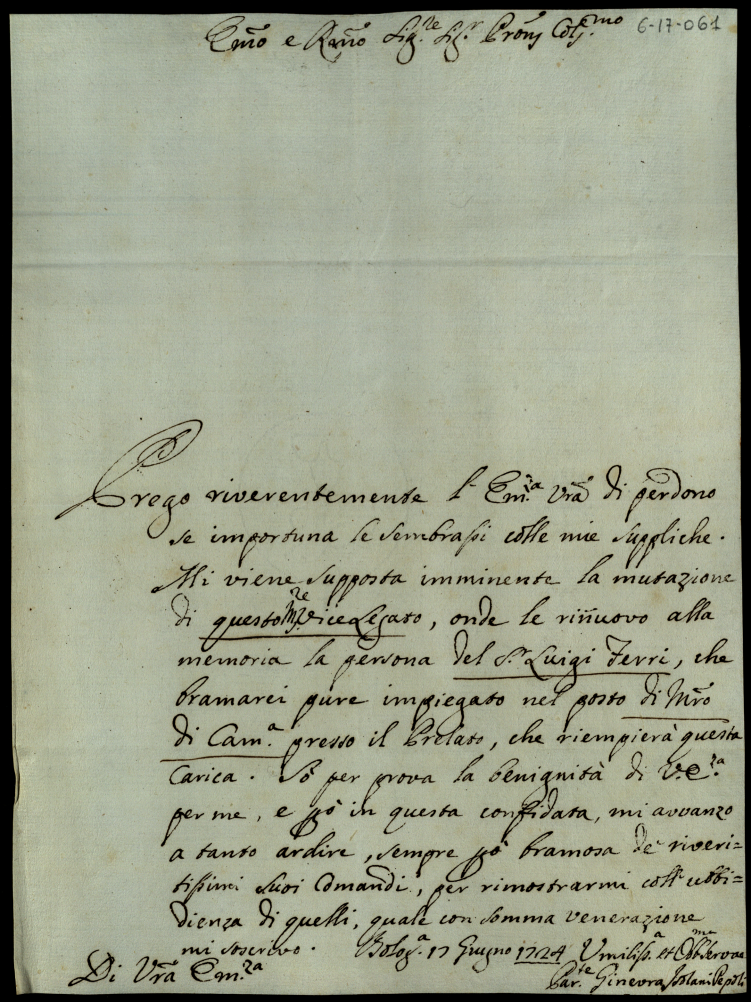 6-17-061
Em̃o e Rm̃o Sig.re Sig.r Prõn Col.mo
Prego riverentemente l'Em.za Vrã di perdono
se importuna le sembrassi colle mie suppliche.
Mi viene supposta imminente la mutazione
di questo M.re Vice Legato, onde le rinuovo alla
memoria la persona del S.r Luigi Ferri, che
bramarei pure impiegato nel posto di Mrõ
di Cam.a presso il Prelato, che riempierà questa
Carica. Sò per prova la benignità di V.E.za
per me, e pò in questa confidata, mi avvanzo
a tanto ardire, sempre pò bramosa de riveri=
tissimi suoi Comandi, per rimostrarmi coll'ubbi=
dienza di quelli, quale con somma venerazione
mi soscrivo. Bolog.a 17 Giugno 1724
Di Vrã Em.za
Umiliss.a et Obb Serva
Par.te Ginevra Isolani Pepoli